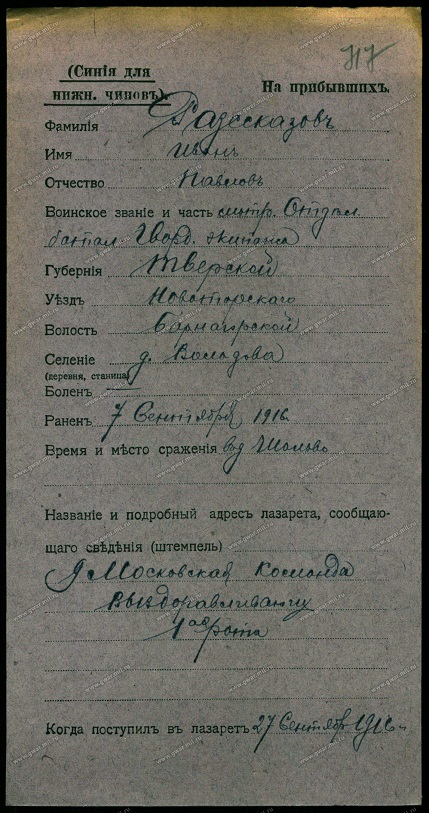 717
(Синія для
нижн. чиновъ).
На прибывшихъ.
Фамилія Разсказовъ
Имя Иванъ
Отчество Павловъ
Воинское званіе и часть матр. Отдѣл.
батал. Гвард. экипажа
Губернія Тверской
Уѣздъ Новоторскаго
Волость
Селеніе д. Володова
(деревня, станица)
Боленъ —
Раненъ 7 Сентября 1916
Время и мѣсто сраженія
Названіе и подробный адресъ лазарета, сообщаю-
щаго свѣдѣнія (штемпель)
Московская Команда
Выздоравливающ
1ая рота
Когда поступилъ въ лазаретъ 27 Сентябр 1916